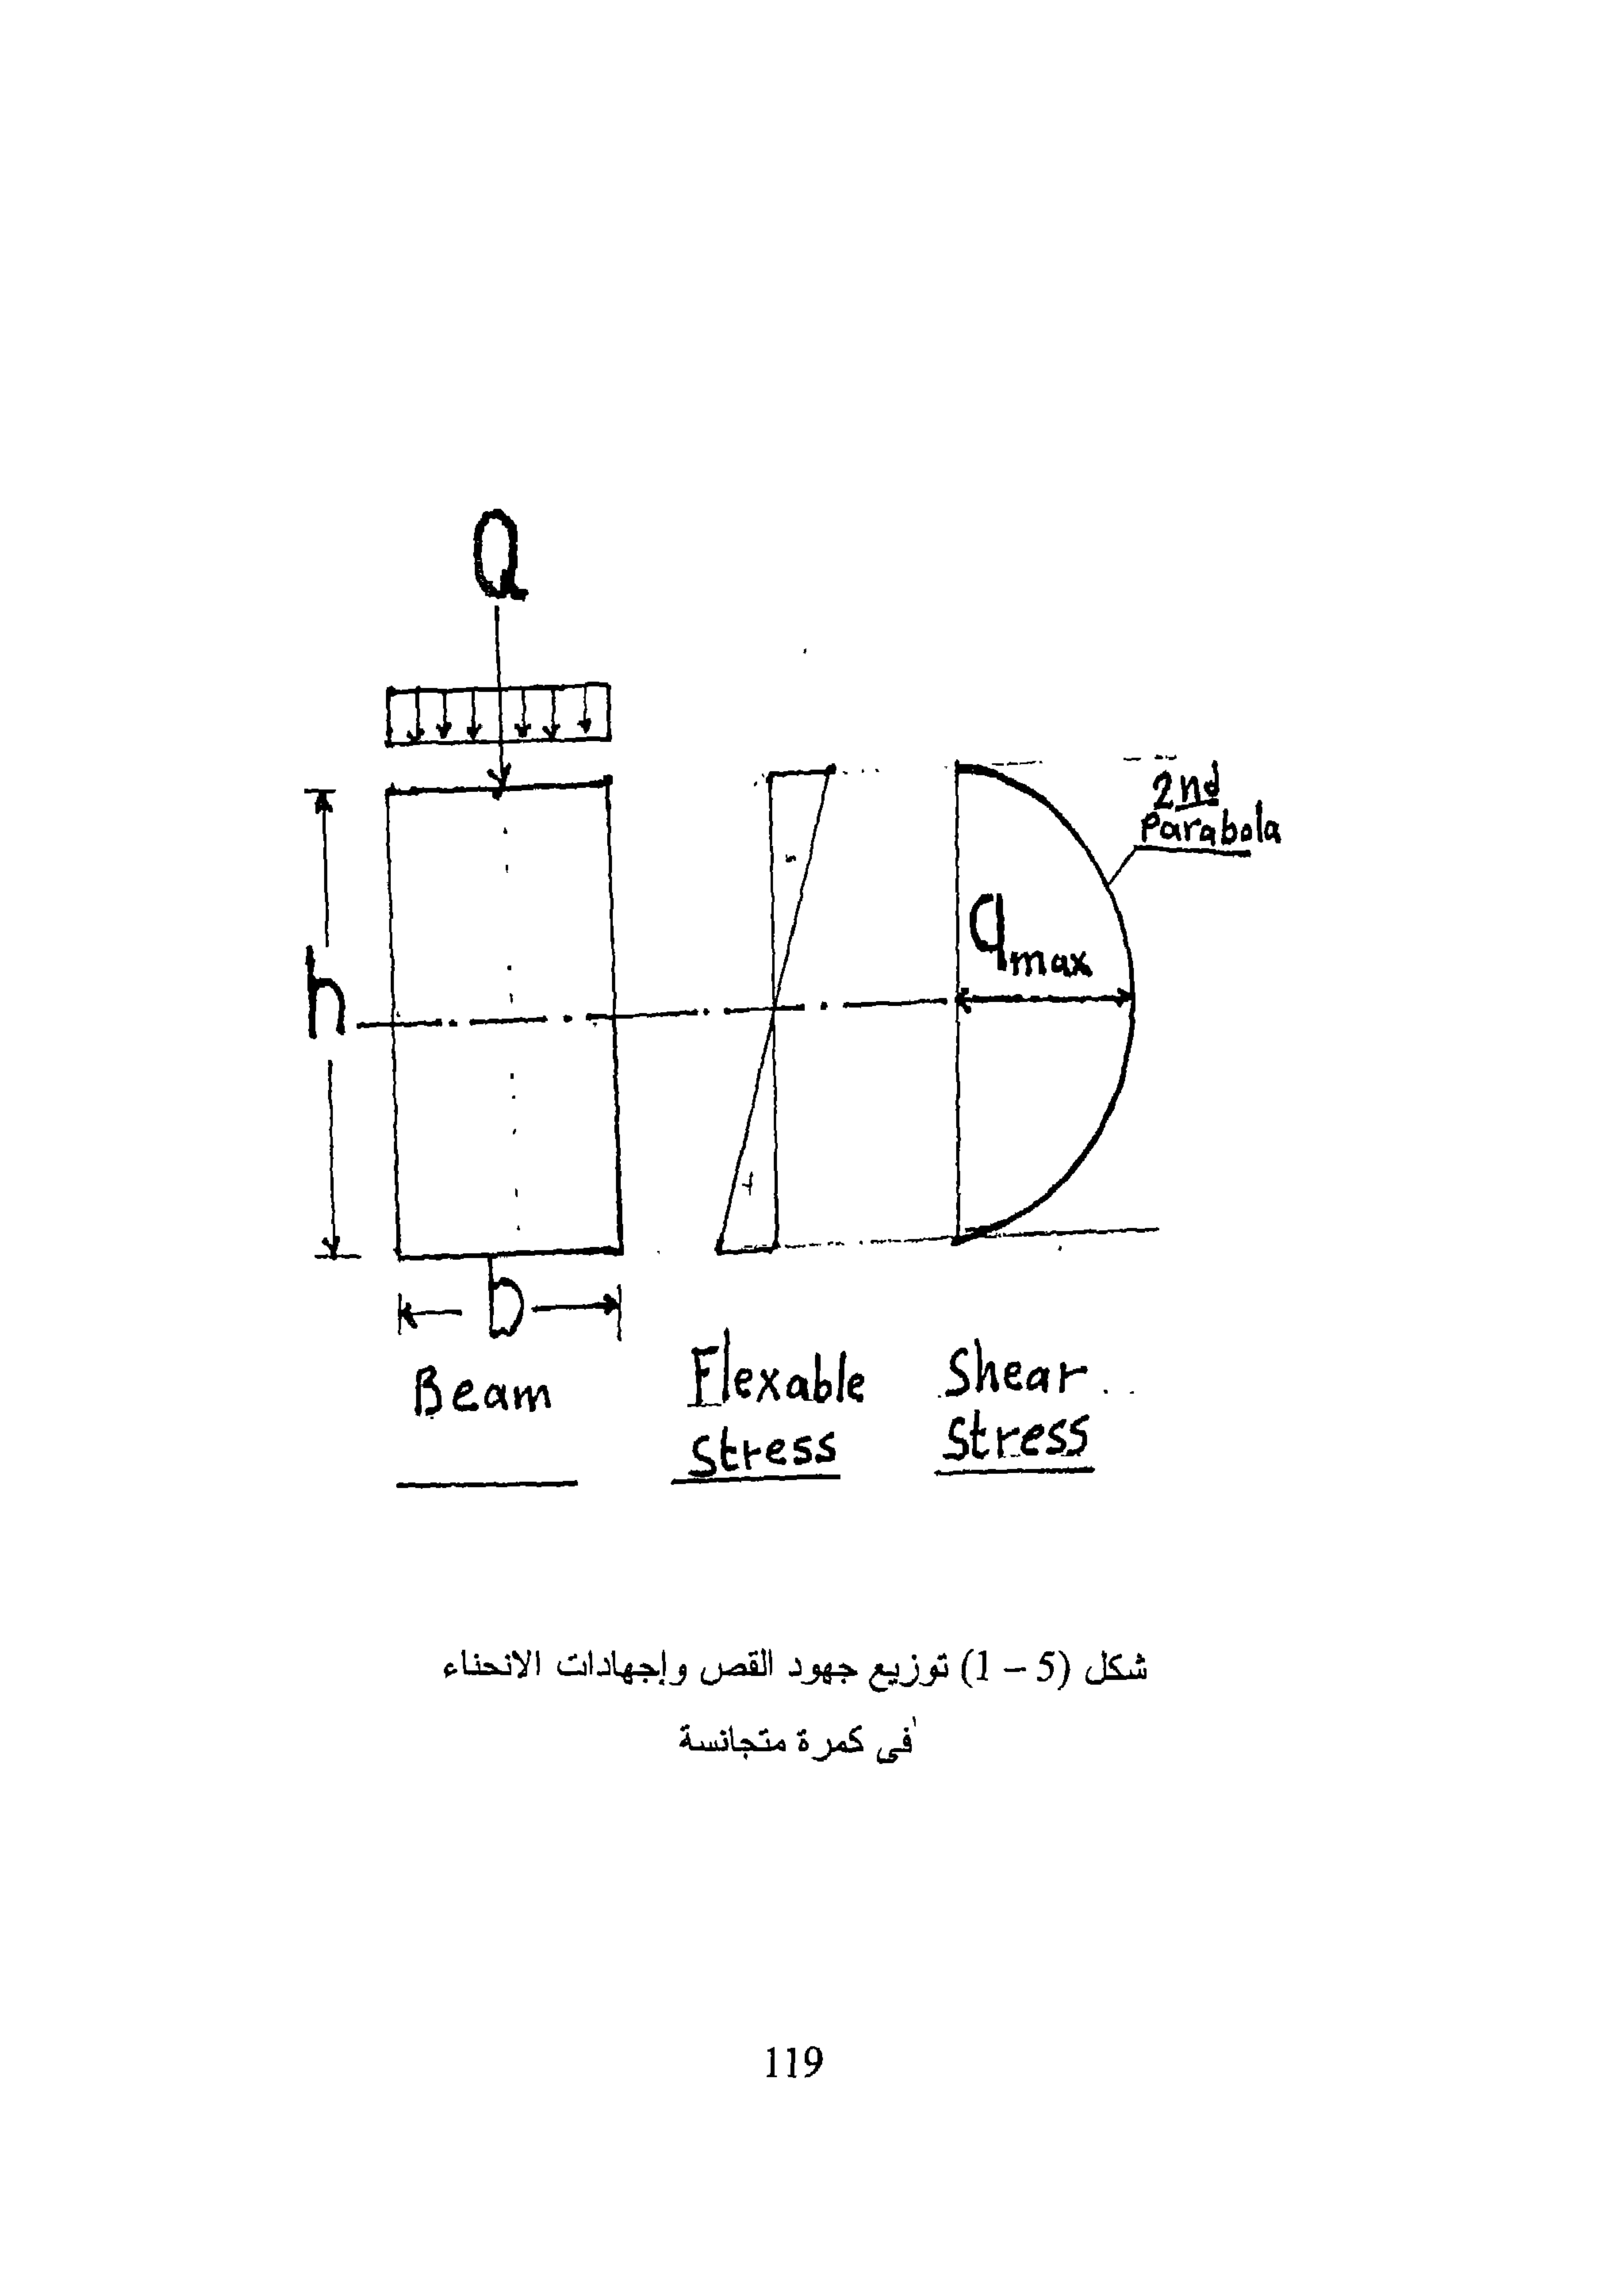 Q
2nd
Parabola
qmax
h
b
Beam
Flexable
Stress
Shear
Stress
شكل (5 – 1) توزيع جهود القص وإجهادات الانحناء
فى كمرة متجانسة
119